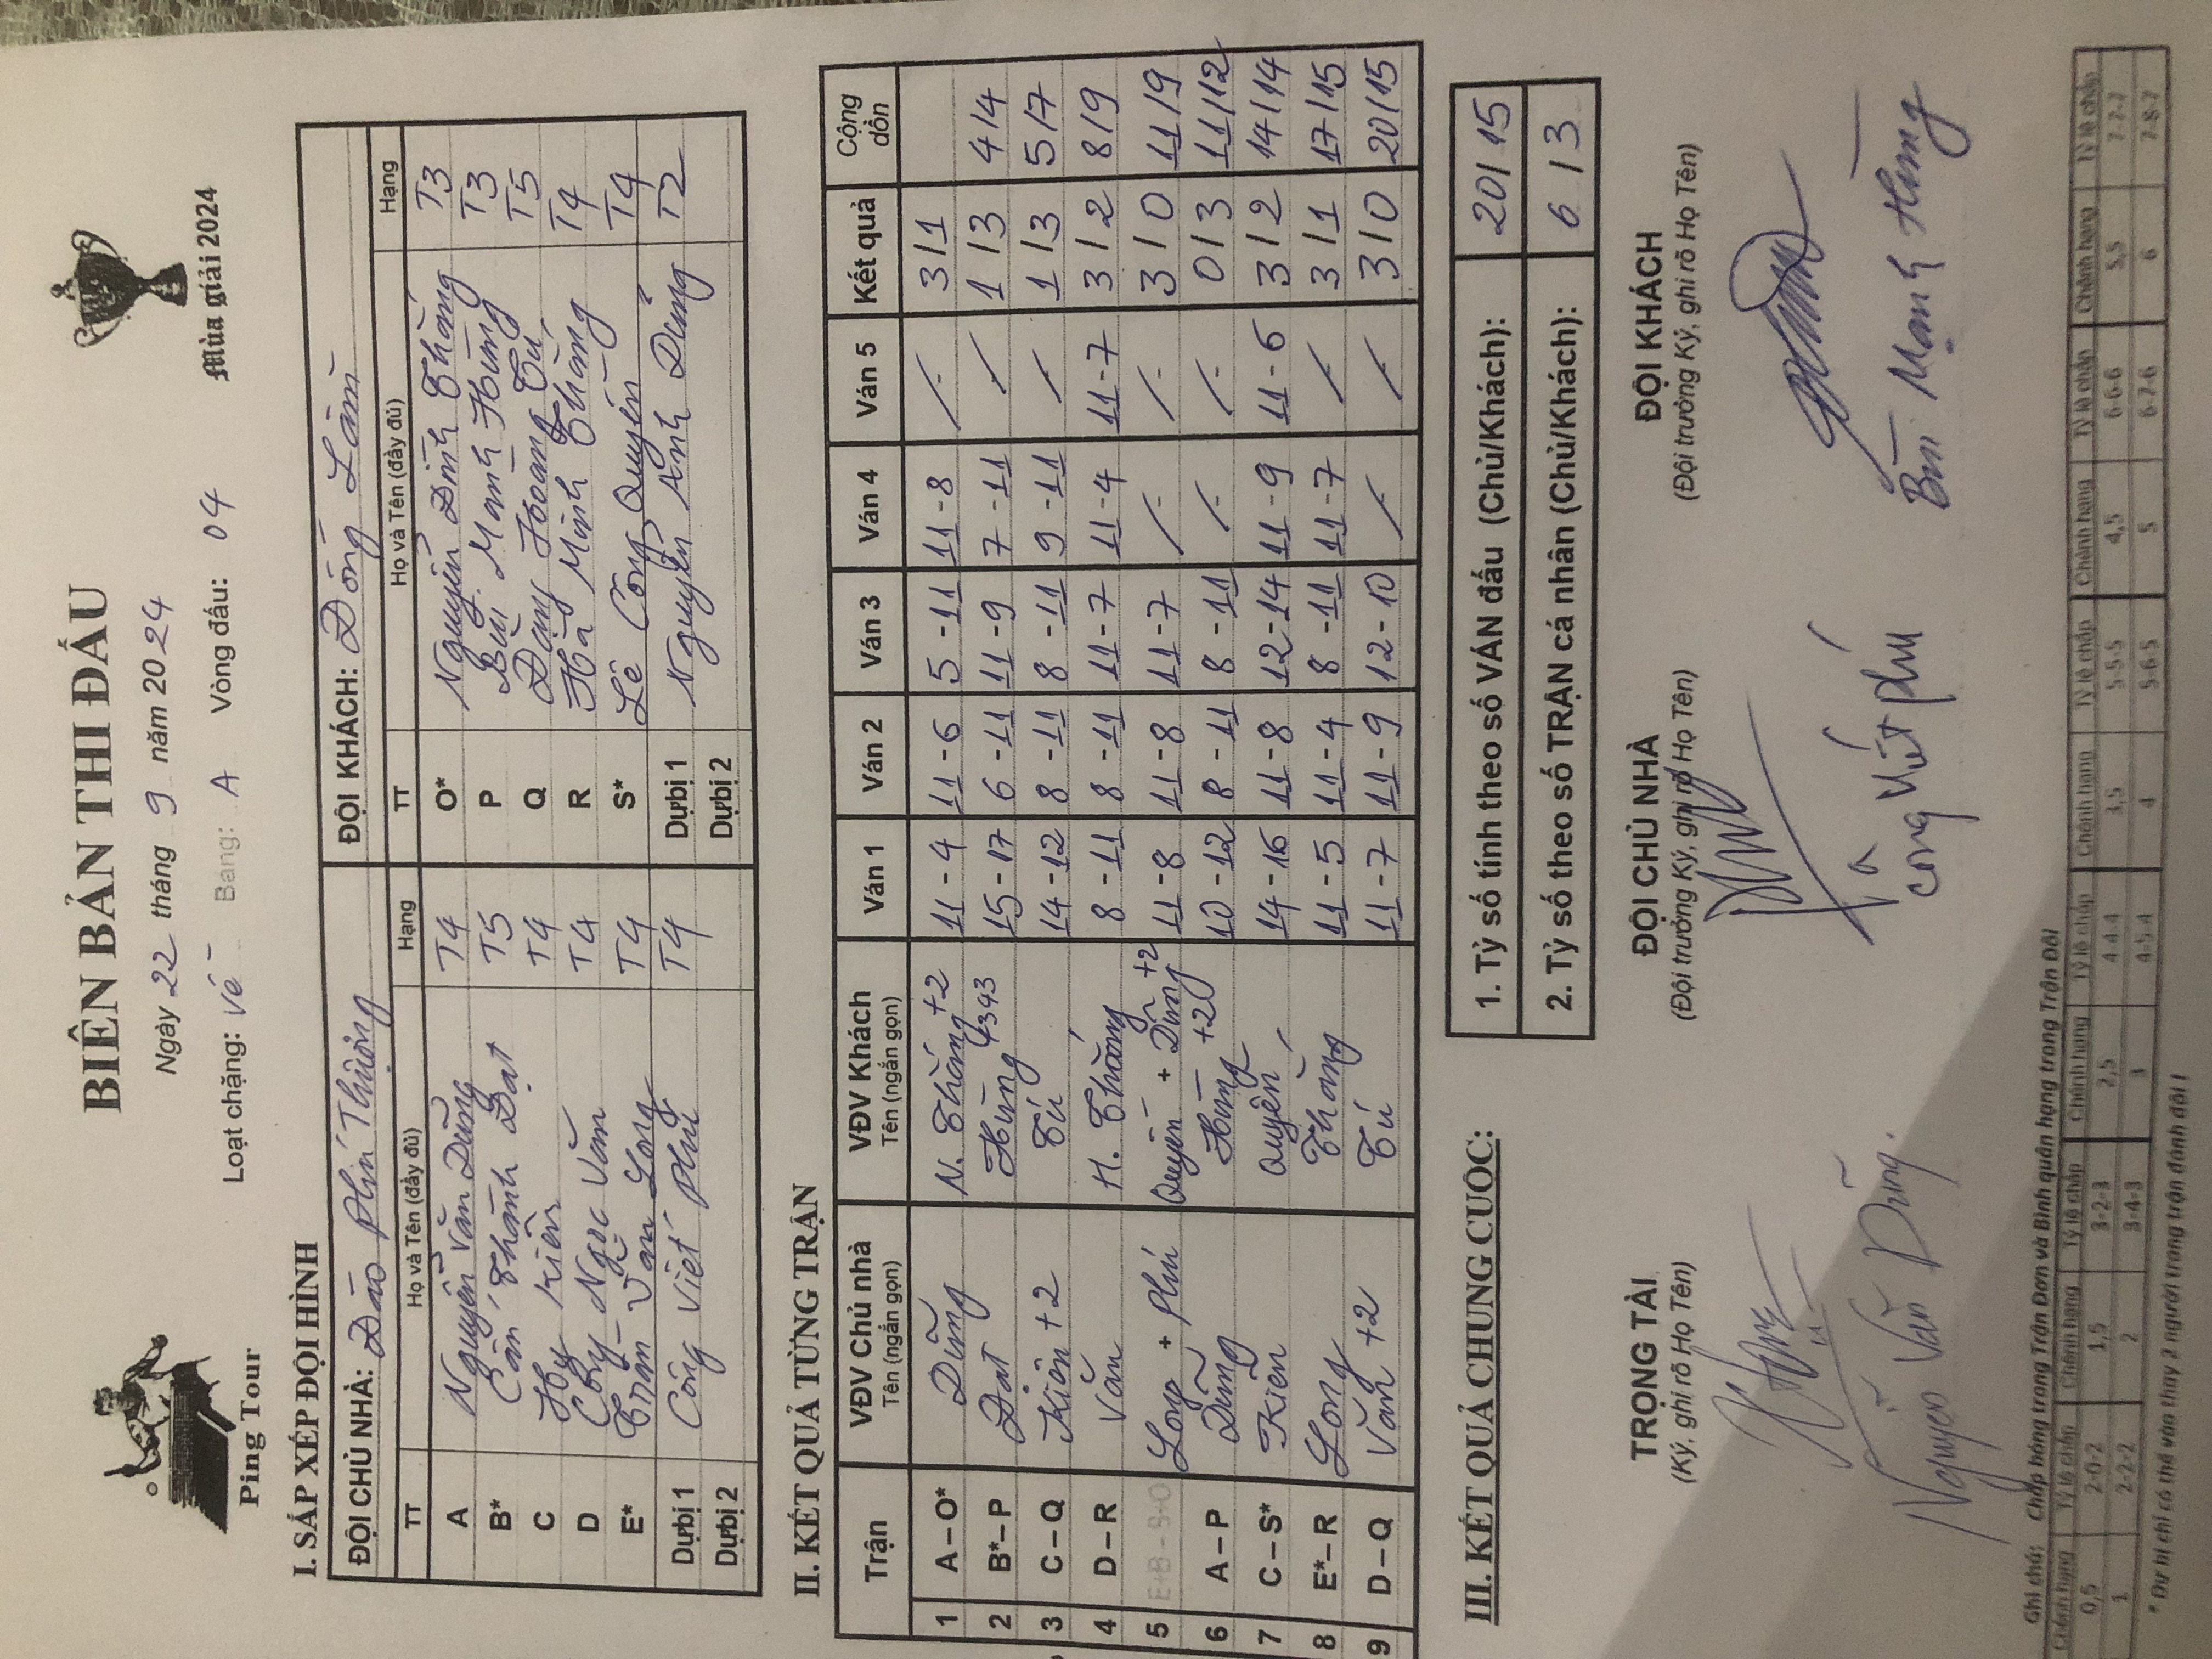 BIÊN BẢN THI ĐẤU
Ngày 22 tháng 9 năm 2024
Ping Tour
Loạt chặng: Về Bảng: A Vòng đấu: 04
Mùa giải 2024
I. SẮP XẾP ĐỘI HÌNH
ĐỘI CHỦ NHÀ: Đào Phú Thượng ĐỘI KHÁCH: Đông Lâm
TT Họ và Tên (đầy đủ) Hạng TT Họ và Tên (đầy đủ) Hạng
A Nguyễn Văn Dũng T4 O* Nguyễn Đình Thắng T3
B* Cấn Thành Đạt T5 P Bùi Mạnh Hùng T3
C Hy Kiên T4 Q Đặng Hoàng Tú T5
D Công Ngọc Văn T4 R Hà Minh Thắng T4
E* Trần Văn Long T4 S* Lê Công Quyền T4
Dự bị 1 Công Viết Phú T4 Dự bị 1 Nguyễn Anh Dũng T2
Dự bị 2 Dự bị 2
II. KẾT QUẢ TỪNG TRẬN
Trận VĐV Chủ nhà Tên (ngắn gọn) VĐV Khách Tên (ngắn gọn) Ván 1 Ván 2 Ván 3 Ván 4 Ván 5 Kết quả Cộng dồn
1 A – O* Dũng N. Thắng +2 11 - 4 11 - 6 5 - 11 11 - 8 3/1
2 B* – P Đạt Hùng 4343 15 - 17 6 - 11 11 - 9 7 - 11 1/3 4/4
3 C – Q Kiên +2 Tú 14 - 12 8 - 11 8 - 11 9 - 11 1/3 5/7
4 D – R Văn H. Thắng 8 - 11 8 - 11 11 - 7 11 - 4 11 - 7 3/2 8/9
5 E+B – S+O Long + Phú Quyền + Dũng +2 11 - 8 11 - 8 11 - 7 3/0 11/9
6 A – P Dũng Hùng +20 10 - 12 8 - 11 8 - 11 0/3 11/12
7 C – S* Kiên Quyền 14 - 16 11 - 8 12 - 14 11 - 9 11 - 6 3/2 14/14
8 E* – R Long Thắng 11 - 5 11 - 4 8 - 11 11 - 7 3/1 17/15
9 D – Q Văn +2 Tú 11 - 7 11 - 9 12 - 10 3/0 20/15
III. KẾT QUẢ CHUNG CUỘC:
1. Tỷ số tính theo số VÁN đấu (Chủ/Khách): 20/15
2. Tỷ số theo số TRẬN cá nhân (Chủ/Khách): 6/3
TRỌNG TÀI ĐỘI CHỦ NHÀ ĐỘI KHÁCH
(Ký, ghi rõ Họ Tên) (Đội trưởng Ký, ghi rõ Họ Tên) (Đội trưởng Ký, ghi rõ Họ Tên)
Nguyễn Văn Dũng Công Viết Phú Bùi Mạnh Hùng
Ghi chú: Chấp bóng trong Trận Đơn và Bình quân hạng trong Trận Đôi
Chênh hạng Tỷ lệ chấp Chênh hạng Tỷ lệ chấp Chênh hạng Tỷ lệ chấp Chênh hạng Tỷ lệ chấp Chênh hạng Tỷ lệ chấp Chênh hạng Tỷ lệ chấp
0,5 2-0-2 1,5 3-2-3 2,5 4-4-4 3,5 5-5-5 4,5 6-6-6 5,5 7-7-7
1 2-2-2 2 3-4-3 3 4-5-4 4 5-6-5 5 6-7-6 6 7-8-7
* Dự bị chỉ có thể vào thay 2 người trong trận đánh đôi !